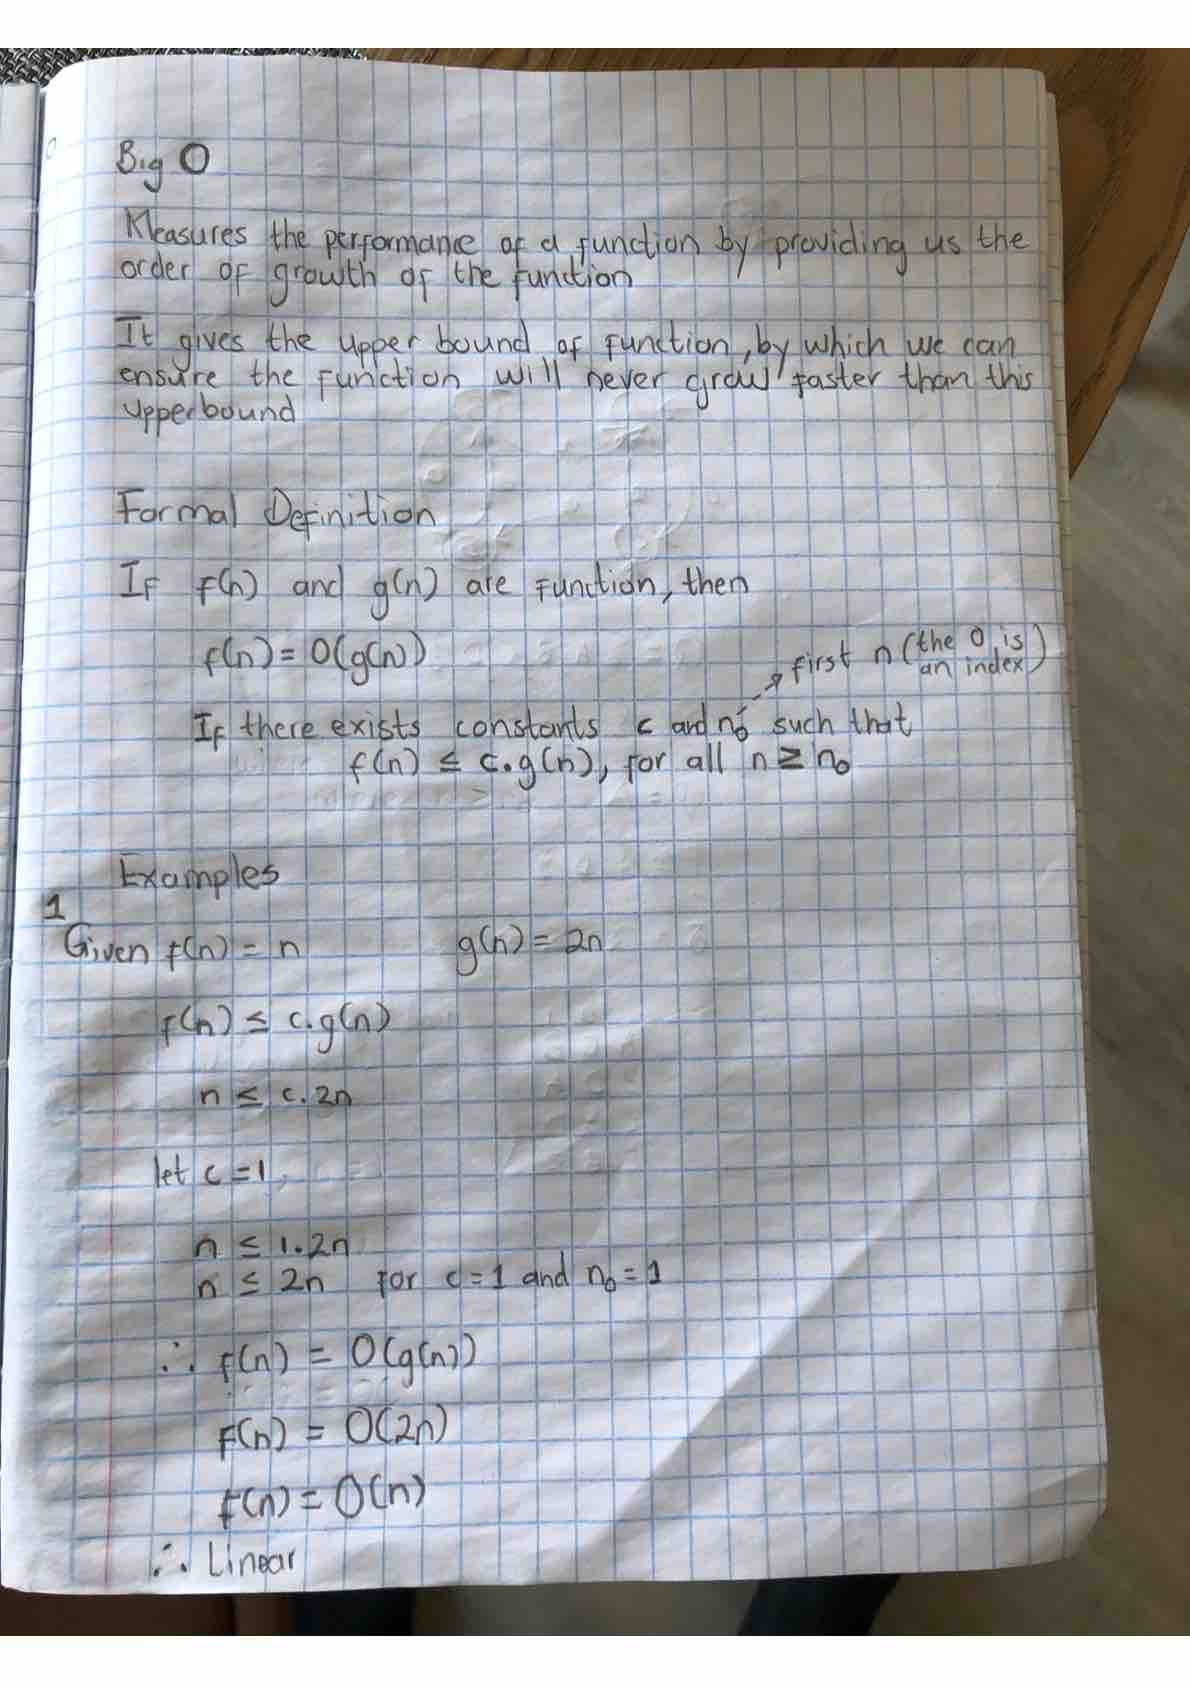 Big O
Measures the performance of a function by providing us the
order of growth of the function
It gives the upper bound of function, by which we can
ensure the function will never grow faster than this
upperbound
Formal Definition
If f(n) and g(n) are function, then
f(n) = O(g(n))
first n (the 0 is
an index)
If there exists constants c and n₀ such that
f(n) ≤ c.g(n), for all n ≥ n₀
Examples
1
Given f(n) = n g(n) = 2n
f(n) ≤ c.g(n)
n ≤ c.2n
let c = 1,
n ≤ 1.2n
n ≤ 2n for c = 1 and n₀ = 1
∴ f(n) = O(g(n))
f(n) = O(2n)
f(n) = O(n)
∴ Linear